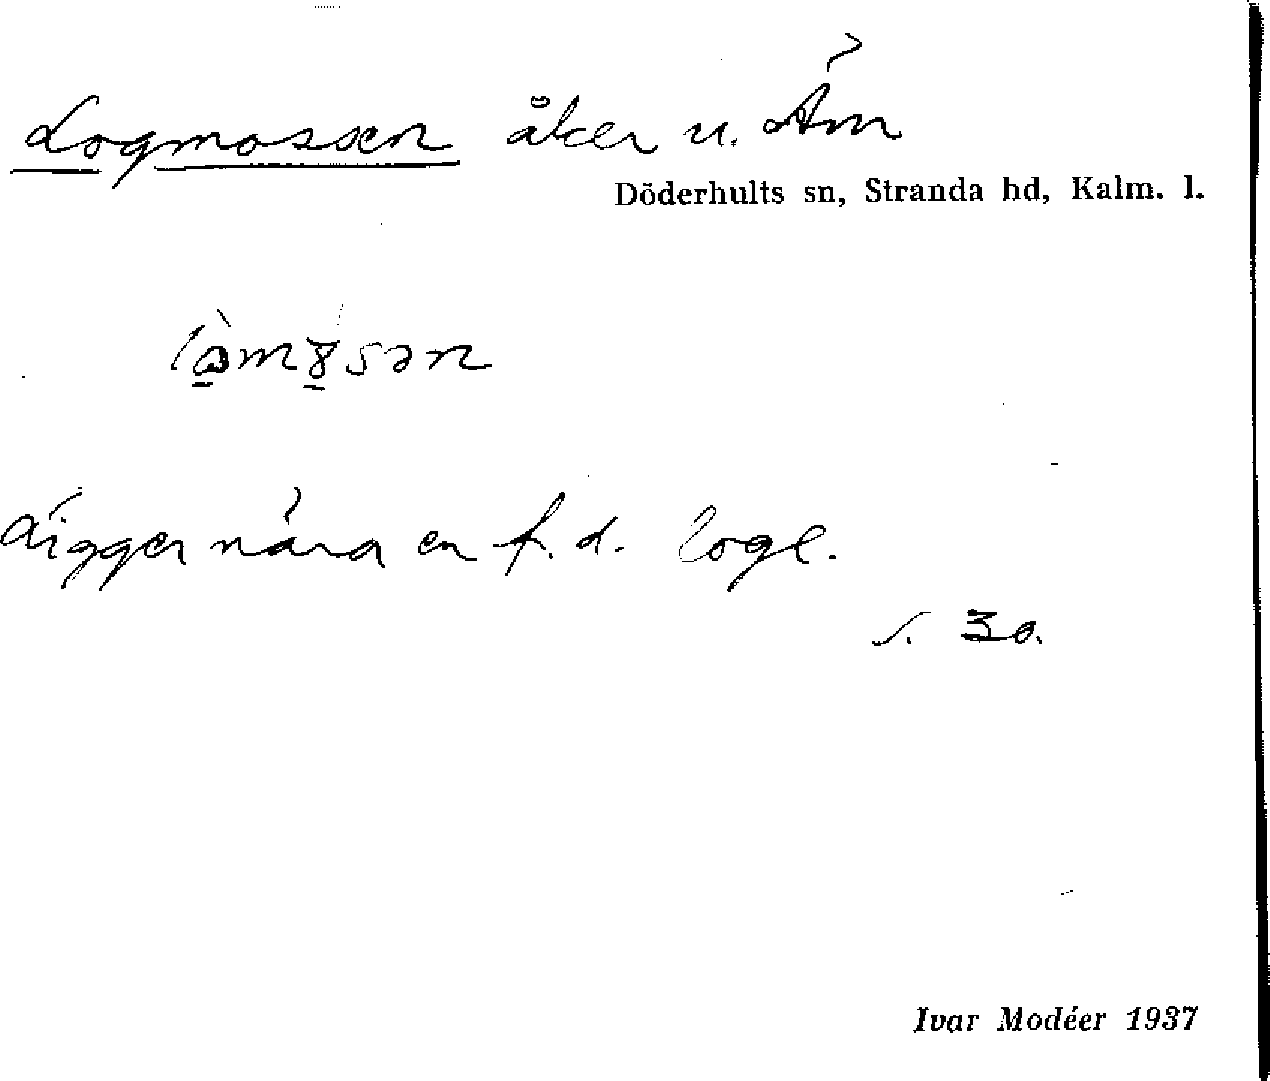 Logmossen åker u. Äm
Döderhults sn, Stranda hd, Kalm. l.
Ligger nära en f. d. loge.
s. 30.
Ivar Modéer 1937